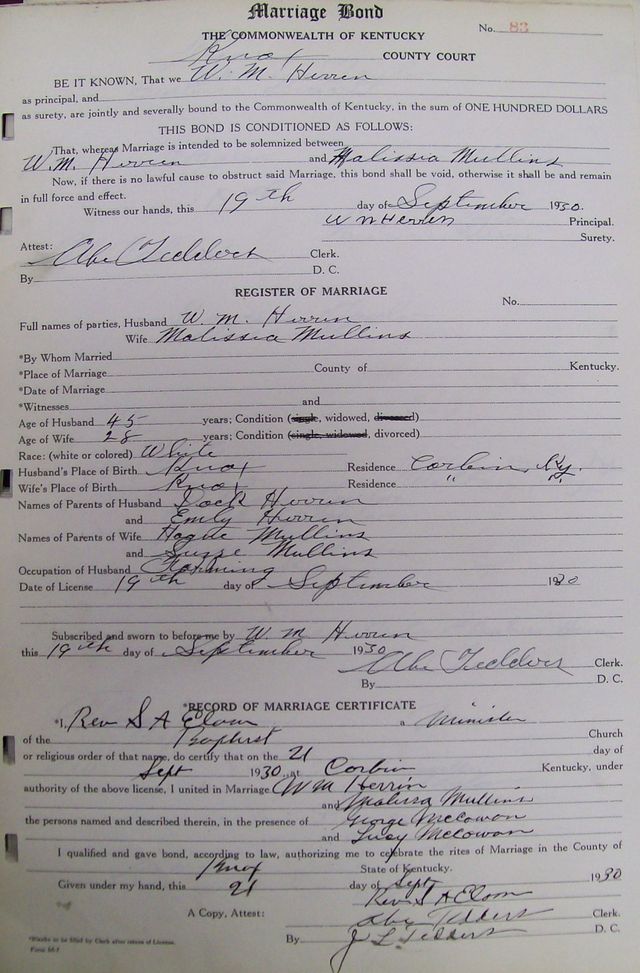 Marriage Bond
No. 83
THE COMMONWEALTH OF KENTUCKY
Knox COUNTY COURT
BE IT KNOWN, That we W. M. Herren
as principal, and
as surety, are jointly and severally bound to the Commonwealth of Kentucky, in the sum of ONE HUNDRED DOLLARS
THIS BOND IS CONDITIONED AS FOLLOWS:
That, whereas Marriage is intended to be solemnized between
W. M. Herren and Malissia Mullins
Now, if there is no lawful cause to obstruct said Marriage, this bond shall be void, otherwise it shall be and remain
in full force and effect.
Witness our hands, this 19th day of September 1930.
W M Herren Principal.
Surety.
Attest: Abe Tedders Clerk.
By D. C.
REGISTER OF MARRIAGE
No.
Full names of parties, Husband W. M. Herren
Wife Malissia Mullins
*By Whom Married
*Place of Marriage County of Kentucky.
*Date of Marriage
*Witnesses and
Age of Husband 45 years; Condition (single, widowed, divorced)
Age of Wife 28 years; Condition (single, widowed, divorced)
Race: (white or colored) White
Husband's Place of Birth Knox Residence Corbin, Ky.
Wife's Place of Birth Knox Residence " "
Names of Parents of Husband Dock Herren
and Emily Herren
Names of Parents of Wife Hogue Mullins
and Susie Mullins
Occupation of Husband Farming
Date of License 19th day of September 1930
Subscribed and sworn to before me by W. M Herren
this 19th day of September 1930
Abe Tedders Clerk.
By D. C.
*RECORD OF MARRIAGE CERTIFICATE
*I, Rev S A Elom a Minister
of the Baptist Church
or religious order of that name, do certify that on the 21 day of
Sept 1930 at Corbin Kentucky, under
authority of the above license, I united in Marriage W M Herrin
and Malissa Mullins
the persons named and described therein, in the presence of George McCowan
and Lucy McCowan
I qualified and gave bond, according to law, authorizing me to celebrate the rites of Marriage in the County of
Knox State of Kentucky.
Given under my hand, this 21 day of Sept 1930
Rev S A Elom
A Copy, Attest: Abe Tedders Clerk.
By J L Tedders D. C.
*Blanks to be filled by Clerk after return of License.